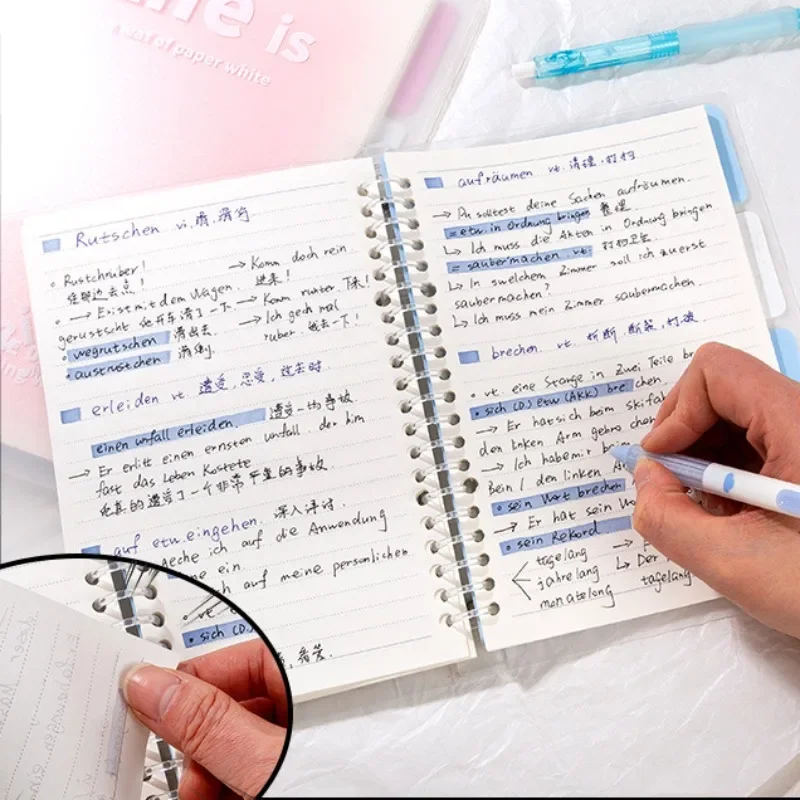 me is
leaf of paper white
Rutschen vi. 滑, 滑行
• Rustchruber!
→ Komm doch rein.
去那边去点!
进来!
• → Er ist mit dem Wagen.
→ Komm runter 下来!
gerustscht 他开车滑了一下
→ Ich geh mal
• wegrutschen 滑出去.
ruber. 他去一下!
• austrustchen 滑倒.
erleiden vt. 遭受, 忍受, 过去时
einen unfall erleiden. 遭受一切事故
→ Er erlitt einen ernsten unfall. der him
fast das Leben Kostete
他真的遭受了一个非常严重的事故
auf etw.eingehen. 深入评讨.
Aeche ich auf die Anwendung
ne ein.
ch auf meine personlichen
• vt e
• sich (D.)
aufräumen vt. 清理, 打扫
→ Du solltest deine Sachen aufräumen.
= etw. in Ordnung bringen 整理
↳ Ich muss die Akten in Ordnung bringen
= saubermachen. vt. 打扫卫生.
↳ In swelchem Zimmer soll ich zuerst
saubermachen?
↳ Ich muss mein Zimmer saubermachen.
brechen. vt. 折断, 断裂, 打破
• vt eine Stange in Zwei Teile br
• sich (D.) etw (AKK) bre chen.
→ Er hat sich beim skifah
den linken Arm gebro chen
→ Ich habe mir beim
Bein / den linken A
• sein Wort brechen
→ Er hat sein W
• sein Rekord
tagelang
jahrelang
↳ Der
monatelong
tagelang